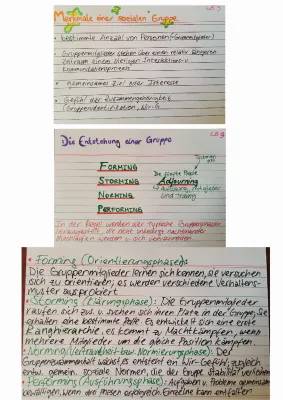 Merkmale einer sozialen Gruppe
• bestimmte Anzahl von Personen (Gruppenmitglieder)
• Gruppenmitglieder stehen über einen relativ längeren
Zeitraum einem stetigen Interaktions- u.
Kommunikationsprozess
• gemeinsames Ziel oder Interesse
• Gefühl der Zusammengehörigkeit
(Gruppenidentifikation, Wir-G
Die Entstehung einer Gruppe
FORMING
STORMING
NORMING
PERFORMING
Die fünfte Phase
Adjourning
Auflösung, Mitglieder
sind traurig
In der Regel werden vier typische Gruppenphasen
• Forming (Orientierungsphase):
Die Gruppenmitglieder lernen sich kennen, sie versuchen
sich zu orientieren, es werden verschiedene Verhaltens-
muster ausprobiert
• Storming (Klärungsphase): Die Gruppenmitglieder
raufen sich zus. u. suchen sich ihren Platz in der Gruppe, sie
erhalten eine bestimmte Rolle. Es entwickelt sich eine erste
Ranghierarchie, es kommt zu Machtkämpfen, wenn
mehrere Mitglieder um die gleiche Position kämpfen.
• Norming (Vertrautheit bzw. Normierungsphase): Der
Gruppenzusammenhalt wächst, es entsteht ein Wir-Gefühl, zugleich
entw. gemein. soziale Normen, die der Gruppe Stabilität verleihen
• Performing (Ausführungsphase): Aufgaben u. Probleme gemeinsam
bewältigen, wenn die Phasen erfolgreich Einzelne kann entfalten